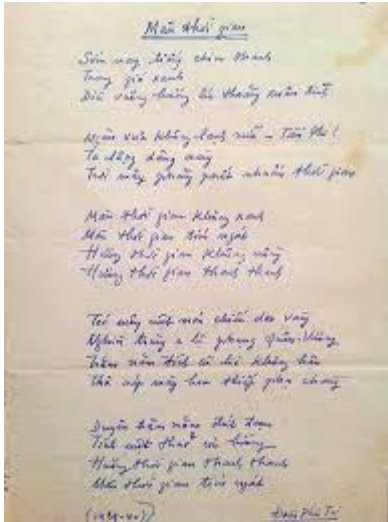 Màu thời gian
Sớm nay tiếng chim thanh
Trong gió xanh
Dìu vương hương ấm thoảng xuân tình
Ngàn xưa không lạnh nữa - Tần Phi!
Ta lặng dâng nàng
Trời mây phảng phất nhuốm thời gian
Màu thời gian không xanh
Màu thời gian tím ngát
Hương thời gian không nồng
Hương thời gian thanh thanh
Tóc mây một món chiếc dao vàng
Nghìn trùng e lệ phụng quân vương
Trăm năm tình cũ lìa không hận
Thà nép mày hoa thiếp phụ chàng
Duyên trăm năm đứt đoạn
Tình một thuở còn hương
Hương thời gian thanh thanh
Màu thời gian tím ngát
Đoàn Phú Tứ